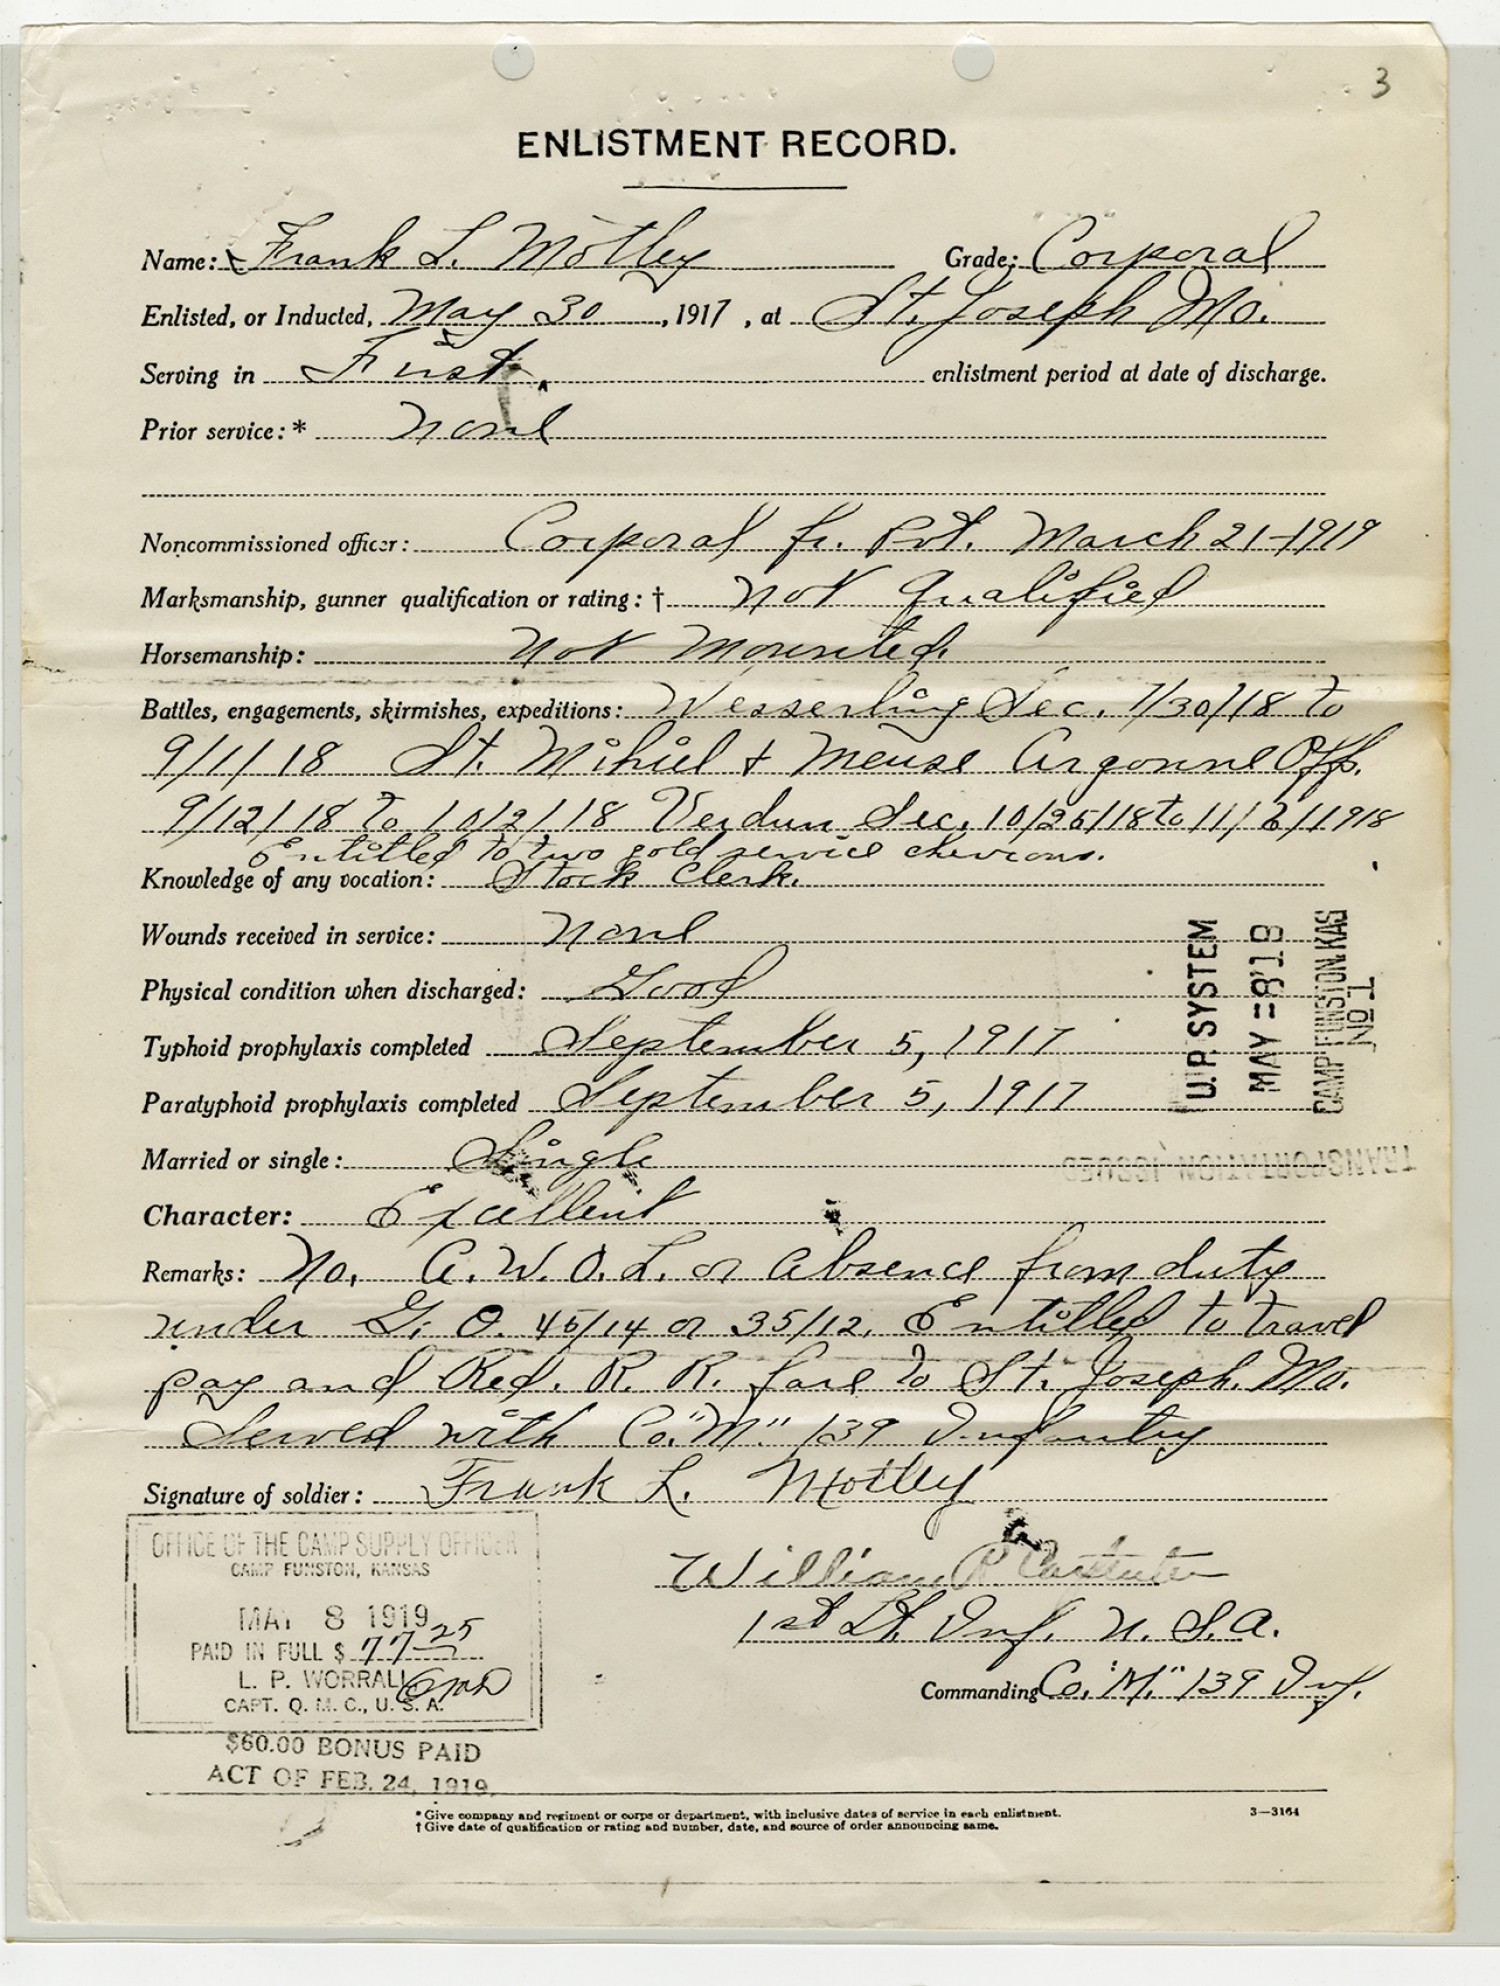 3
ENLISTMENT RECORD.
Name: Frank L. Motley Grade: Corporal
Enlisted, or Inducted, May 30, 1917, at St. Joseph Mo.
Serving in First enlistment period at date of discharge.
Prior service:* None
Noncommissioned officer: Corporal fr. Pvt. March 21-1919
Marksmanship, gunner qualification or rating:† Not Qualified
Horsemanship: Not Mounted.
Battles, engagements, skirmishes, expeditions: Wesserling Sec. 7/30/18 to
9/1/18 St. Mihiel + Meuse Argonne Off.
9/12/18 to 10/2/18 Verdun Sec. 10/25/18 to 11/6/1918
Entitled to two gold service chevrons.
Knowledge of any vocation: Stock Clerk.
Wounds received in service: None
Physical condition when discharged: Good
Typhoid prophylaxis completed September 5, 1917
Paratyphoid prophylaxis completed September 5, 1917
Married or single: Single
Character: Excellent
Remarks: No. A. W. O. L. or absence from duty
under G. O. 45/14 or 35/12. Entitled to travel
pay and Red. R. R. fare to St. Joseph. Mo.
Served with Co. "M" 139 Infantry
Signature of soldier: Frank L. Motley
William R
1st Lt. Inf. U. S. A.
Commanding Co. "M" 139 Inf.
U.P. SYSTEM
MAY =8'19
CAMP FUNSTON, KAS
No 1
TRANSPORTATION ISSUED
OFFICE OF THE CAMP SUPPLY OFFICER
CAMP FUNSTON, KANSAS
MAY 8 1919
PAID IN FULL $ 77 25
L. P. WORRALL
CAPT. Q. M. C., U. S. A.
$60.00 BONUS PAID
ACT OF FEB. 24, 1919
* Give company and regiment or corps or department, with inclusive dates of service in each enlistment.
† Give date of qualification or rating and number, date, and source of order announcing same.
3—3164